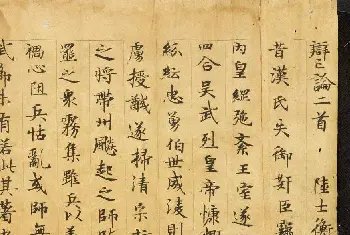 辯亡論二首 陸士衡
昔漢氏失御奸臣竊
內皇綱弛紊王室遂
四合吳武烈皇帝慷慨
紜紜忠勇伯世威稜則
虜授馘遂掃清宗
之將帶州飇起之師
罷之衆霧集雖兵以義
禍心阻兵怙亂或師無
武節未有若此其著